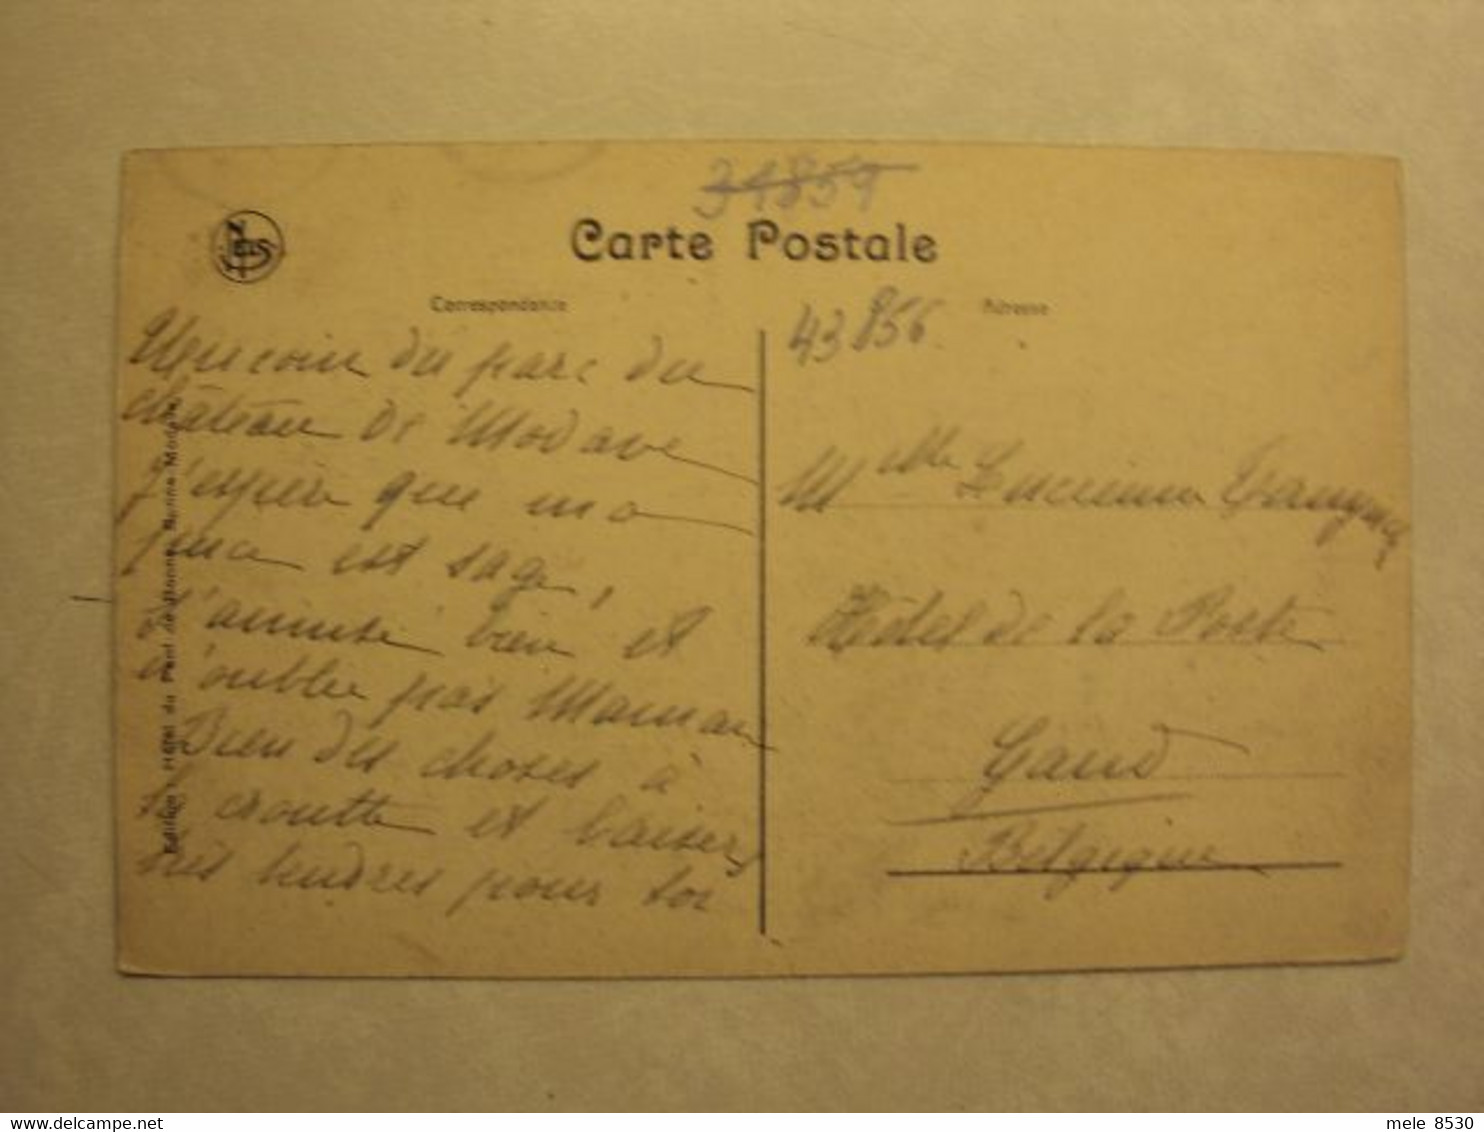 31859
NELS
Carte Postale
Correspondance
Adresse
43856
Un coin du parc du
château de Modave
J'espère que ma
puce est sage,
s'amuse bien et
n'oublie pas Maman
Bien des choses à
la croutte et baisers
très tendres pour toi
Melle Lucienne
Hôtel de la Poste
Gand
Belgique
Edition Hôtel du Pont de Bonne, Bonne-Modave
mele 8530